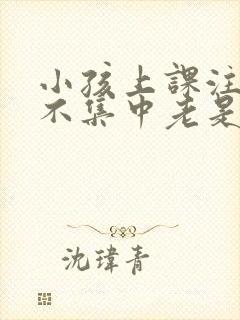 小孩上課注
不集中老是
沈瑋青